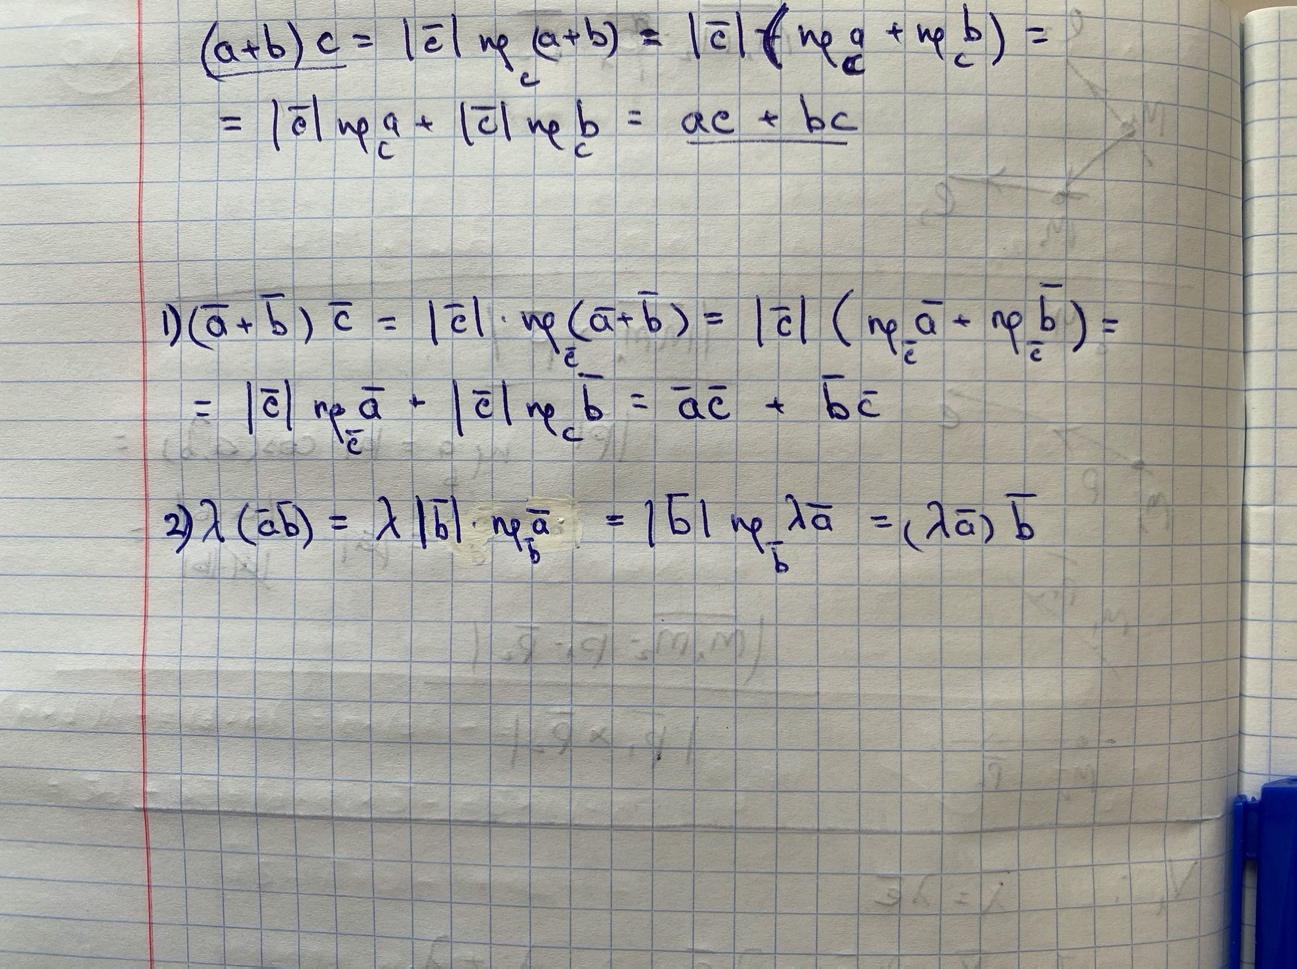 (a+b) c = |c̄| пр_c (a+b) = |c̄| (пр_c a + пр_c b) =
= |c̄| пр_c a + |c̄| пр_c b = ac + bc
1) (ā+b̄) c̄ = |c̄| · пр_c̄ (ā+b̄) = |c̄| (пр_c̄ ā + пр_c̄ b̄) =
= |c̄| пр_c̄ ā + |c̄| пр_c b̄ = āc̄ + b̄c̄
2) λ (āb̄) = λ |b̄| · пр_b̄ ā = |b̄| пр_b̄ λā = (λā) b̄